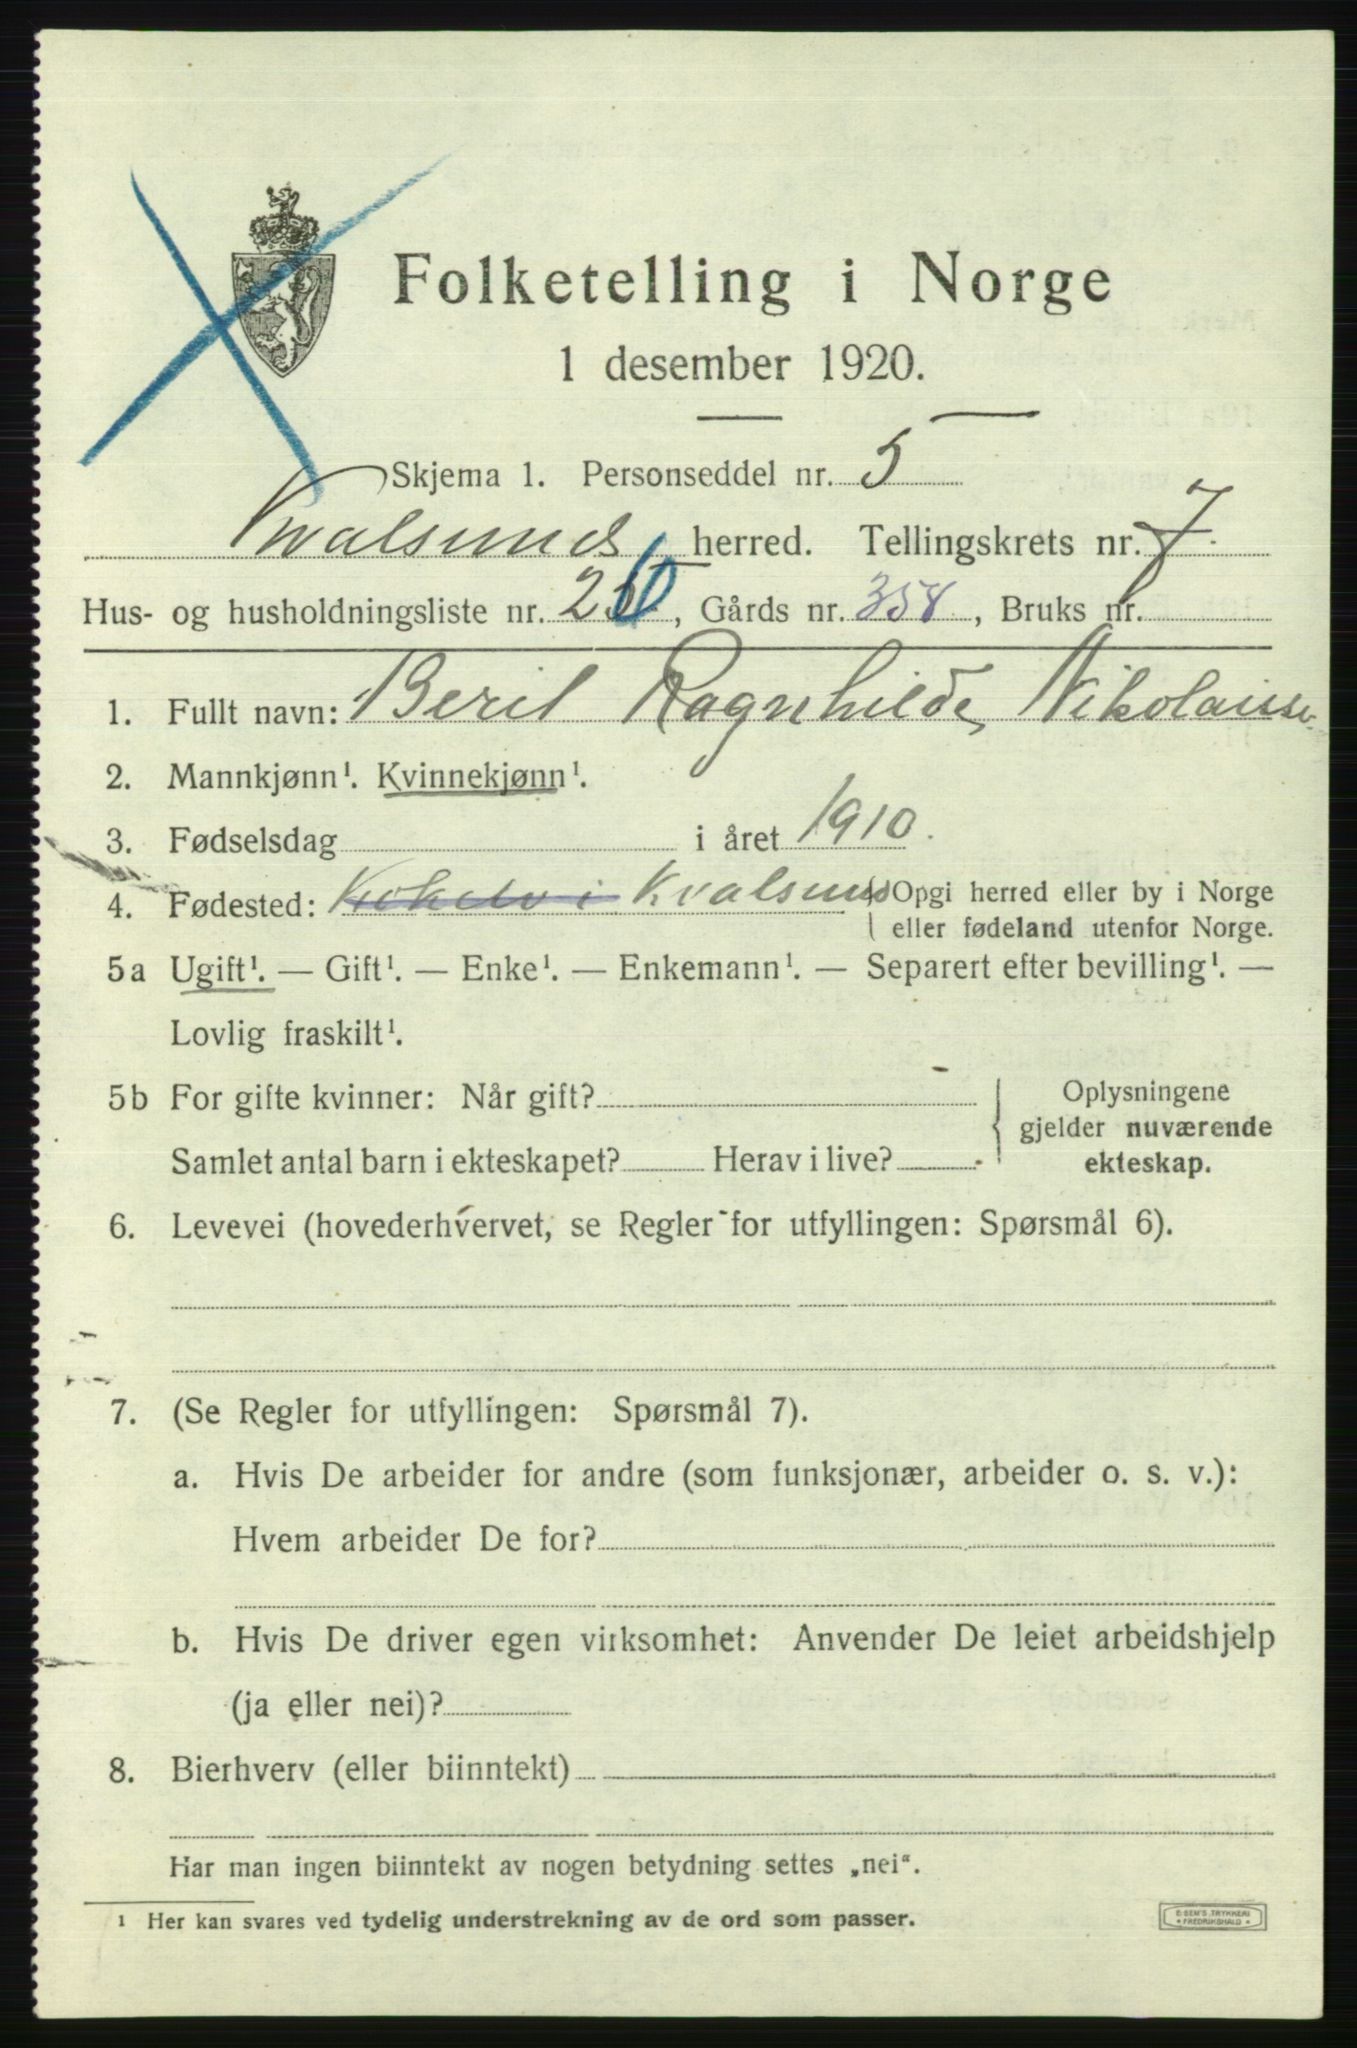 Folketelling i Norge
1 desember 1920.
Skjema 1. Personseddel nr. 5
Kvalsund herred. Tellingskrets nr. 7.
Hus- og husholdningsliste nr. 26, Gårds nr. 358, Bruks nr.
1. Fullt navn: Beril Ragnhilde Nikolaisen
2. Mannkjønn¹. Kvinnekjønn¹.
3. Fødselsdag i året 1910.
4. Fødested: Kokelv i Kvalsund Opgi herred eller by i Norge
eller fødeland utenfor Norge.
5a Ugift¹. — Gift¹. — Enke¹. — Enkemann¹. — Separert efter bevilling¹. —
Lovlig fraskilt¹.
5b For gifte kvinner: Når gift?
Samlet antal barn i ekteskapet? Herav i live?
Oplysningene
gjelder nuværende
ekteskap.
6. Levevei (hovederhvervet, se Regler for utfyllingen: Spørsmål 6).
7. (Se Regler for utfyllingen: Spørsmål 7).
a. Hvis De arbeider for andre (som funksjonær, arbeider o. s. v.):
Hvem arbeider De for?
b. Hvis De driver egen virksomhet: Anvender De leiet arbeidshjelp
(ja eller nei)?
8. Bierhverv (eller biinntekt)
Har man ingen biinntekt av nogen betydning settes „nei“.
¹ Her kan svares ved tydelig understrekning av de ord som passer.
E. SEM'S TRYKKERI
FREDRIKSHALD